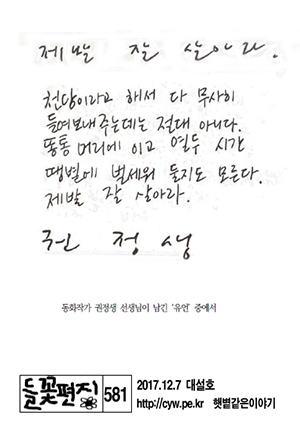 제발 잘 살아라.
천당이라고 해서 다 무사히
들여보내주는데는 절대 아니다.
똥통 머리에 이고 열두 시간
땡볕에 벌세워 둘지도 모른다.
제발 잘 살아라.
권정생
동화작가 권정생 선생님이 남긴 '유언' 중에서
들꽃편지 581 2017.12.7 대설호
http://cyw.pe.kr 햇볕같은이야기